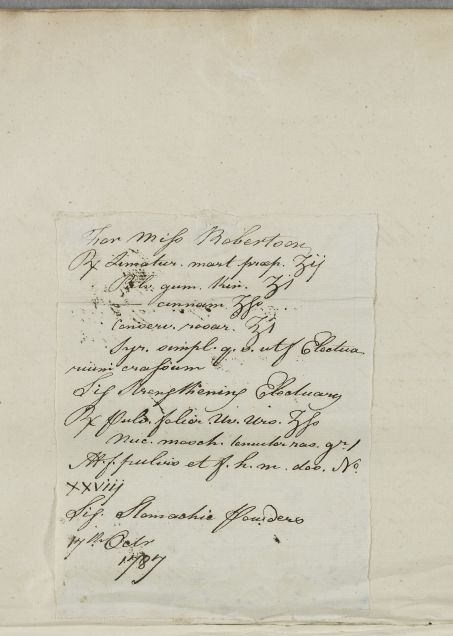 For Miss Robertson
℞ Limatur. mart. præp. ʒij
Pulv. gum. Kin. ʒi
cinnam. ʒſs
Conserv. rosar. ℥i
Syr. simpl. q. s. ut f. Electua
rium crassum
Sig Strengthening Electuary
℞ Pulv. folior. Uv. Urs. ʒſs
Nuc. mosch. gr. 1
M. f. pulvis et f. h. m. dos. No.
XXViij
Sig. Stomachic Powders
17th Octr
1787